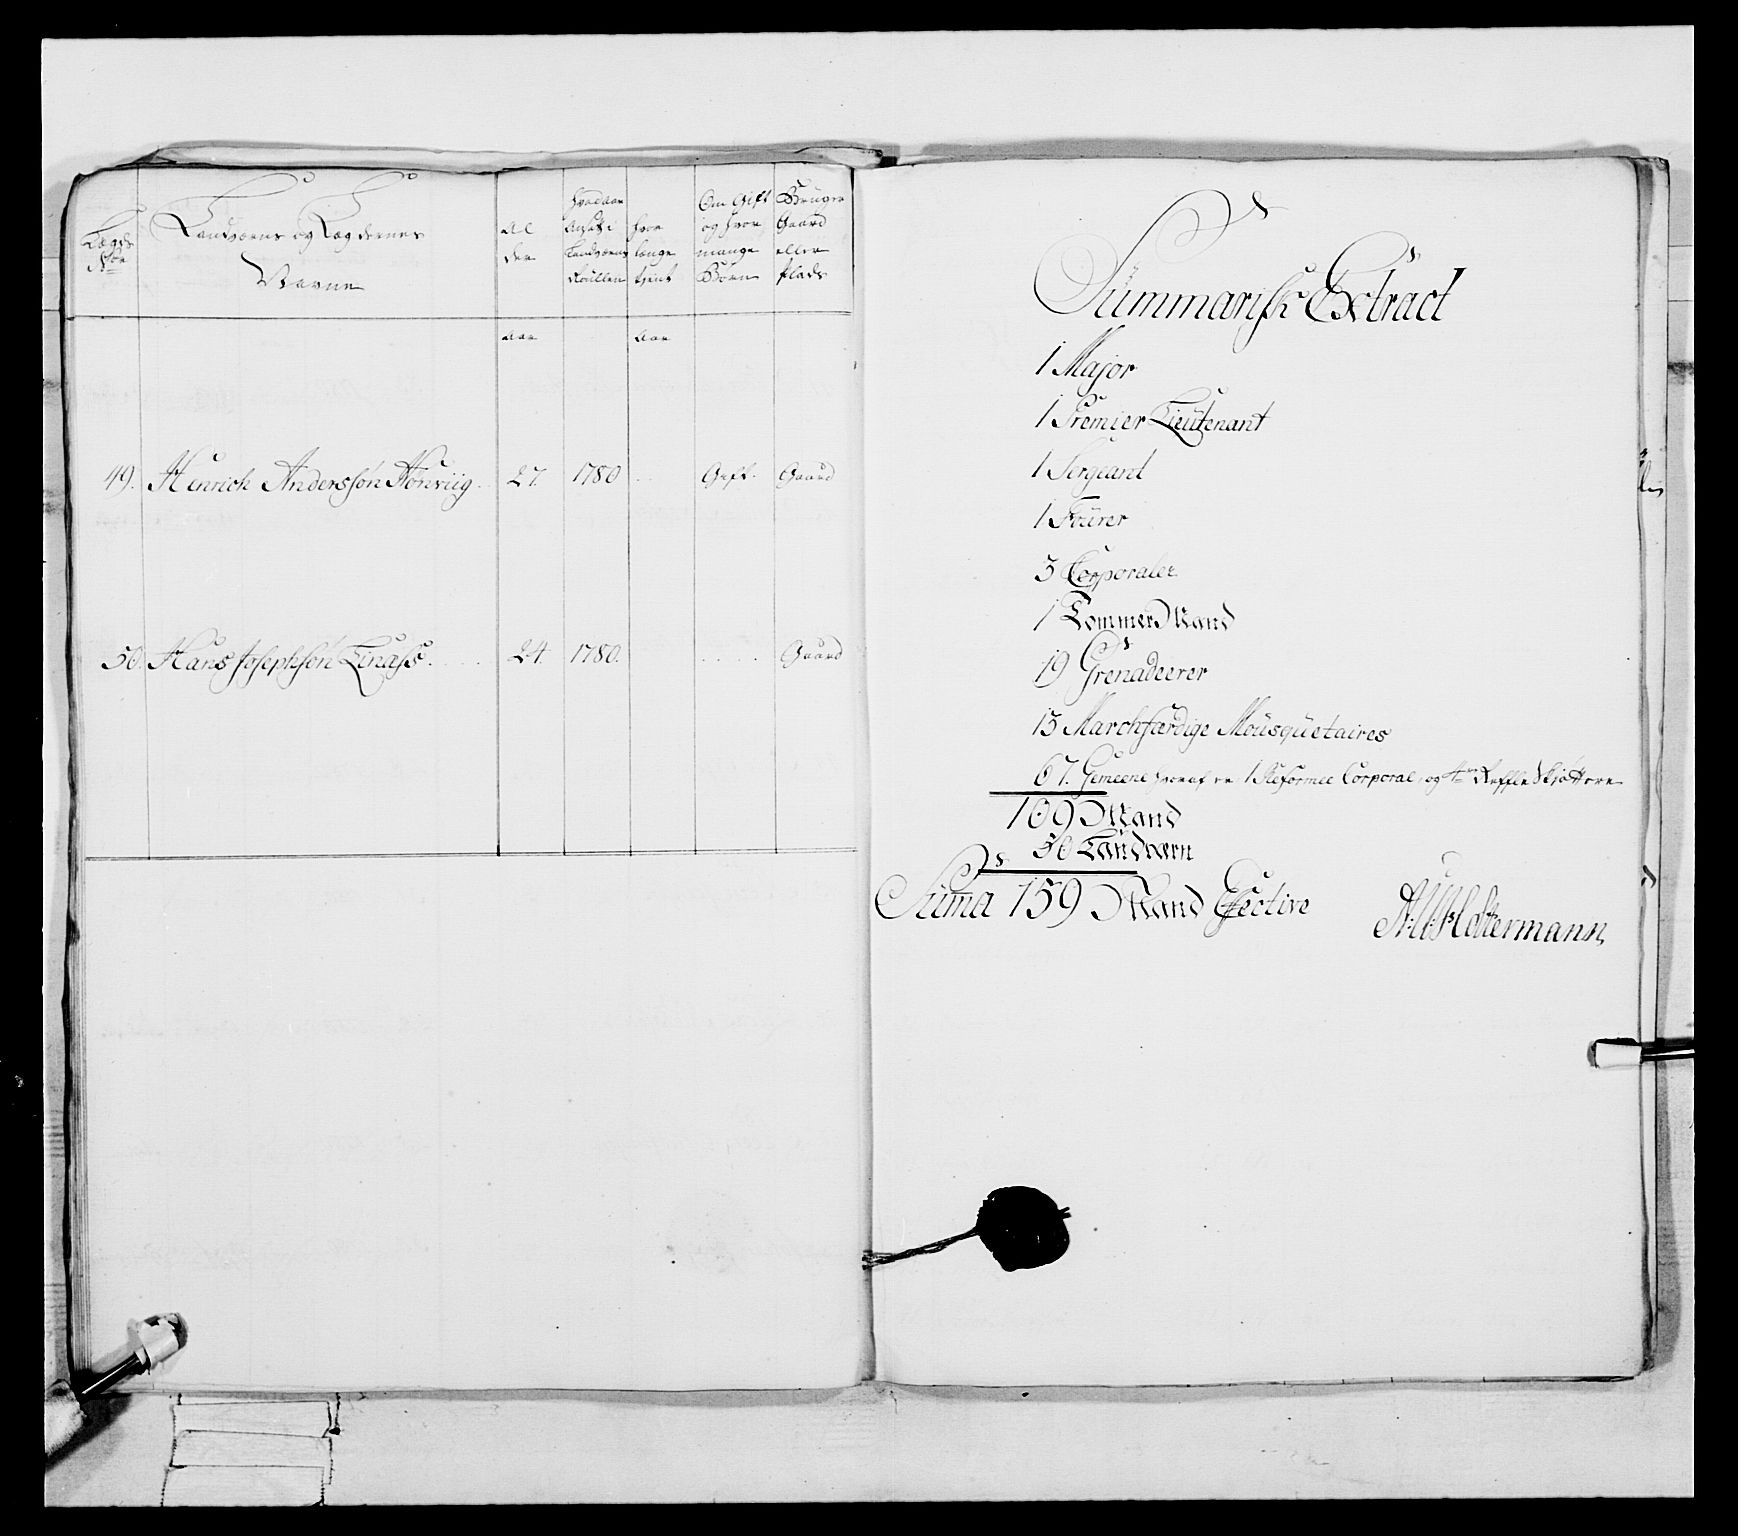 Lægds
Nor
Landværns og Lægdernes
Navne
Al
der
hvad aar
ansat i
Landværns
Roullen
hvor
længe
tient
Om Gift
og hvor
mange
Børn
Bruger
Gaard
eller
Plads
aar
aar
49. Henrich Andersøn 27. 1780 Gift. Gaard
50. Hans Josephsøn 24. 1780. Gaard
Summarisk Extract
1 Major
1 Premier Lieutenant
1 Sergeant
1 Fourer
3 Corporaler
1 TømmerMand
19 Grenadeerer
15 Marchfærdige Mousquetaires
67. Gemeene hvoraf er 1 Reformee Corporal, og 4re Reffle Skjøttere
109 Mand
50 Landværn
Suma 159 Mand Effective
Klostermann